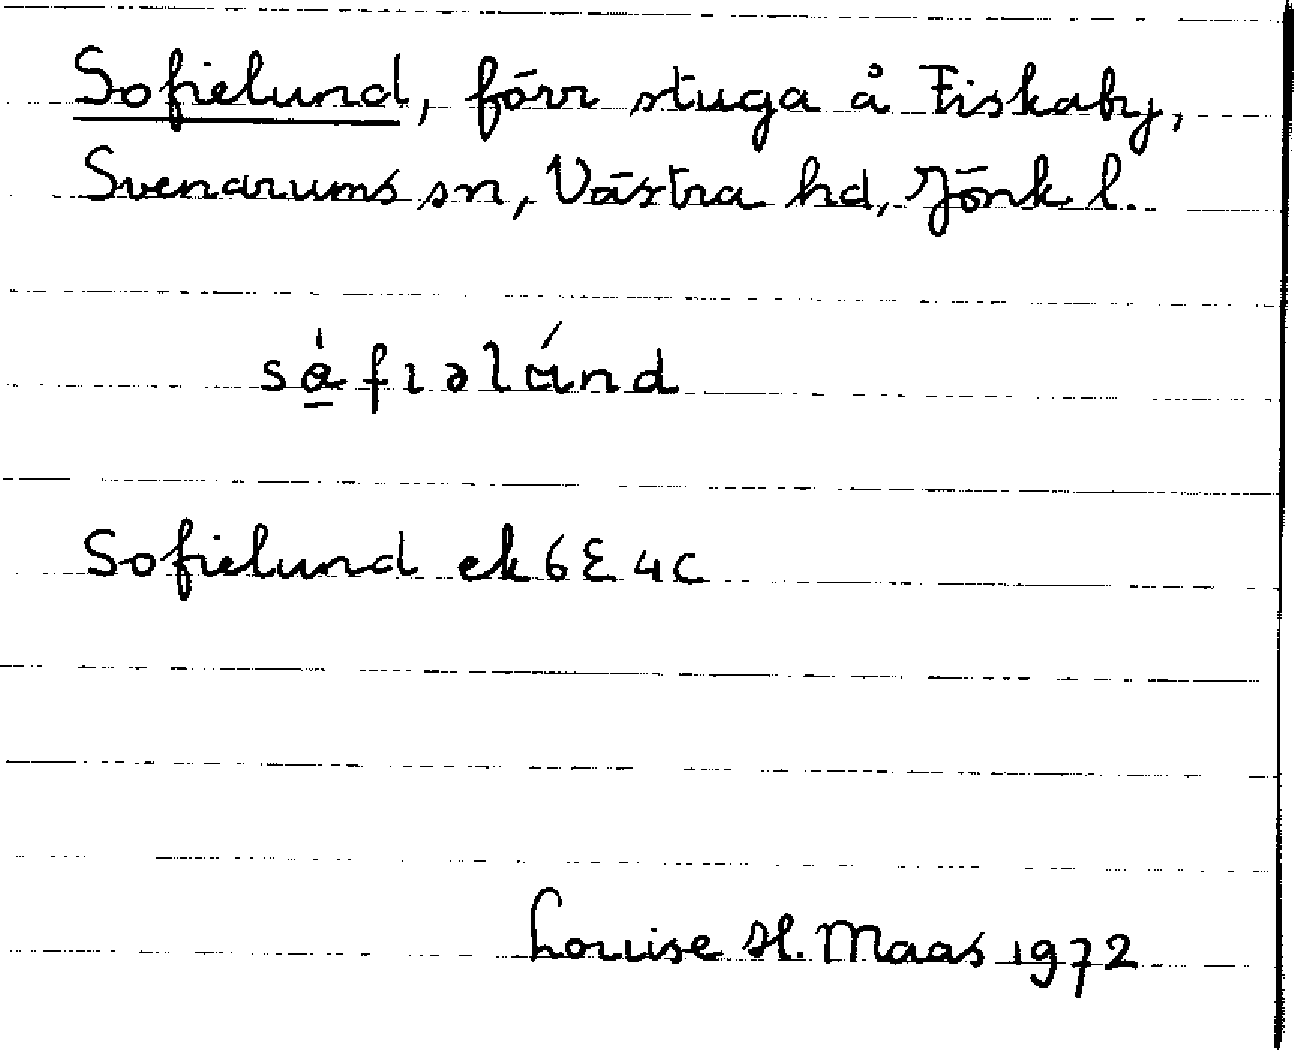 Sofielund, förr stuga å Fiskaby,
Svenarums sn, Västra hd, Jönk l.
Sofielund ek 6E4c
Louise H. Maas 1972